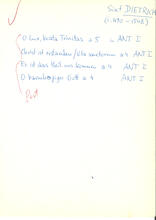 Sixt DIETRICH
(c. 1490 - 1548)
O lux, beata Trinitas a 5 in ANT I
Christ ist erstanden / a 4 ANT I
Es ist das Heil uns kommen a 4 ANT I
O barmherziger Gott a 4 ANT I